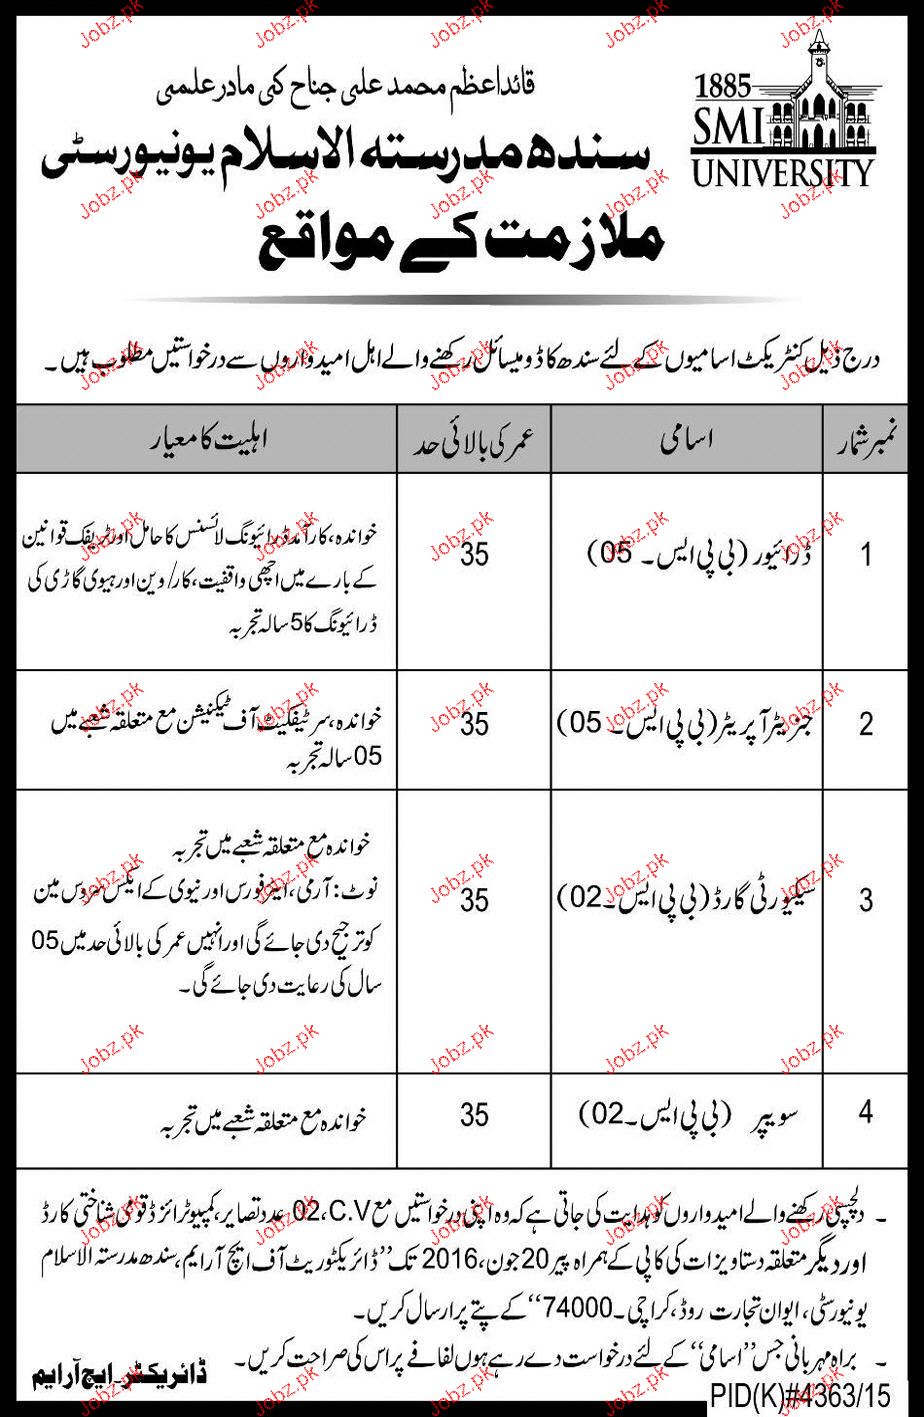 قائداعظم محمد علی جناح کی مادر علمی
1885
SMI
UNIVERSITY
سندھ مدرستہ الاسلام یونیورسٹی
ملازمت کے مواقع
درج ذیل کنٹریکٹ اسامیوں کے لئے سندھ کا ڈومیسائل رکھنے والے اہل امیدواروں سے درخواستیں مطلوب ہیں۔
نمبر شمار اسامی عمر کی بالائی حد اہلیت کا معیار
1 ڈرائیور (بی پی ایس۔05) 35 خواندہ، کارآمد ڈرائیونگ لائسنس کا حامل اور ٹریفک قوانین
کے بارے میں اچھی واقفیت، کار/وین اور ہیوی گاڑی کی
ڈرائیونگ کا 5 سالہ تجربہ
2 جنریٹر آپریٹر (بی پی ایس۔05) 35 خواندہ، سرٹیفکیٹ آف ٹیکنیشن مع متعلقہ شعبے میں
05 سالہ تجربہ
3 سیکیورٹی گارڈ (بی پی ایس۔02) 35 خواندہ مع متعلقہ شعبے میں تجربہ
نوٹ: آرمی، ایئرفورس اور نیوی کے ایکس سروس مین
کو ترجیح دی جائے گی اور انہیں عمر کی بالائی حد میں 05
سال کی رعایت دی جائے گی۔
4 سویپر (بی پی ایس۔02) 35 خواندہ مع متعلقہ شعبے میں تجربہ
۔ دلچسپی رکھنے والے امیدواروں کو ہدایت کی جاتی ہے کہ وہ اپنی درخواستیں مع C.V، 02 عدد تصاویر، کمپیوٹرائزڈ قومی شناختی کارڈ
اور دیگر متعلقہ دستاویزات کی کاپی کے ہمراہ پیر 20 جون، 2016 تک ”ڈائریکٹوریٹ آف ایچ آر ایم، سندھ مدرستہ الاسلام
یونیورسٹی، ایوان تجارت روڈ، کراچی۔74000“ کے پتے پر ارسال کریں۔
۔ براہ مہربانی جس ”اسامی“ کے لئے درخواست دے رہے ہوں لفافے پر اس کی صراحت کریں۔
ڈائریکٹر۔ایچ آر ایم
PID(K)#4363/15
Jobz.pk